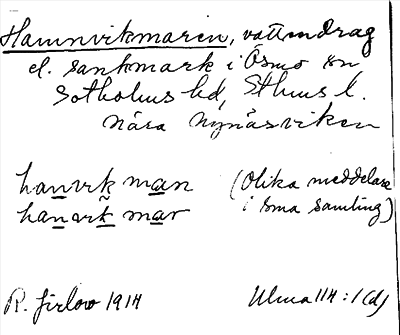 Hamnvikmaren, vattendrag
el. sankmark i Ösmo sn
Sotholms hd, Sthms l.
Nära Nynäsviken
hanvik man (Olika meddelare
hanvik mar i sma samling)
R. Jirlow 1914 Ulma 114:1(d)